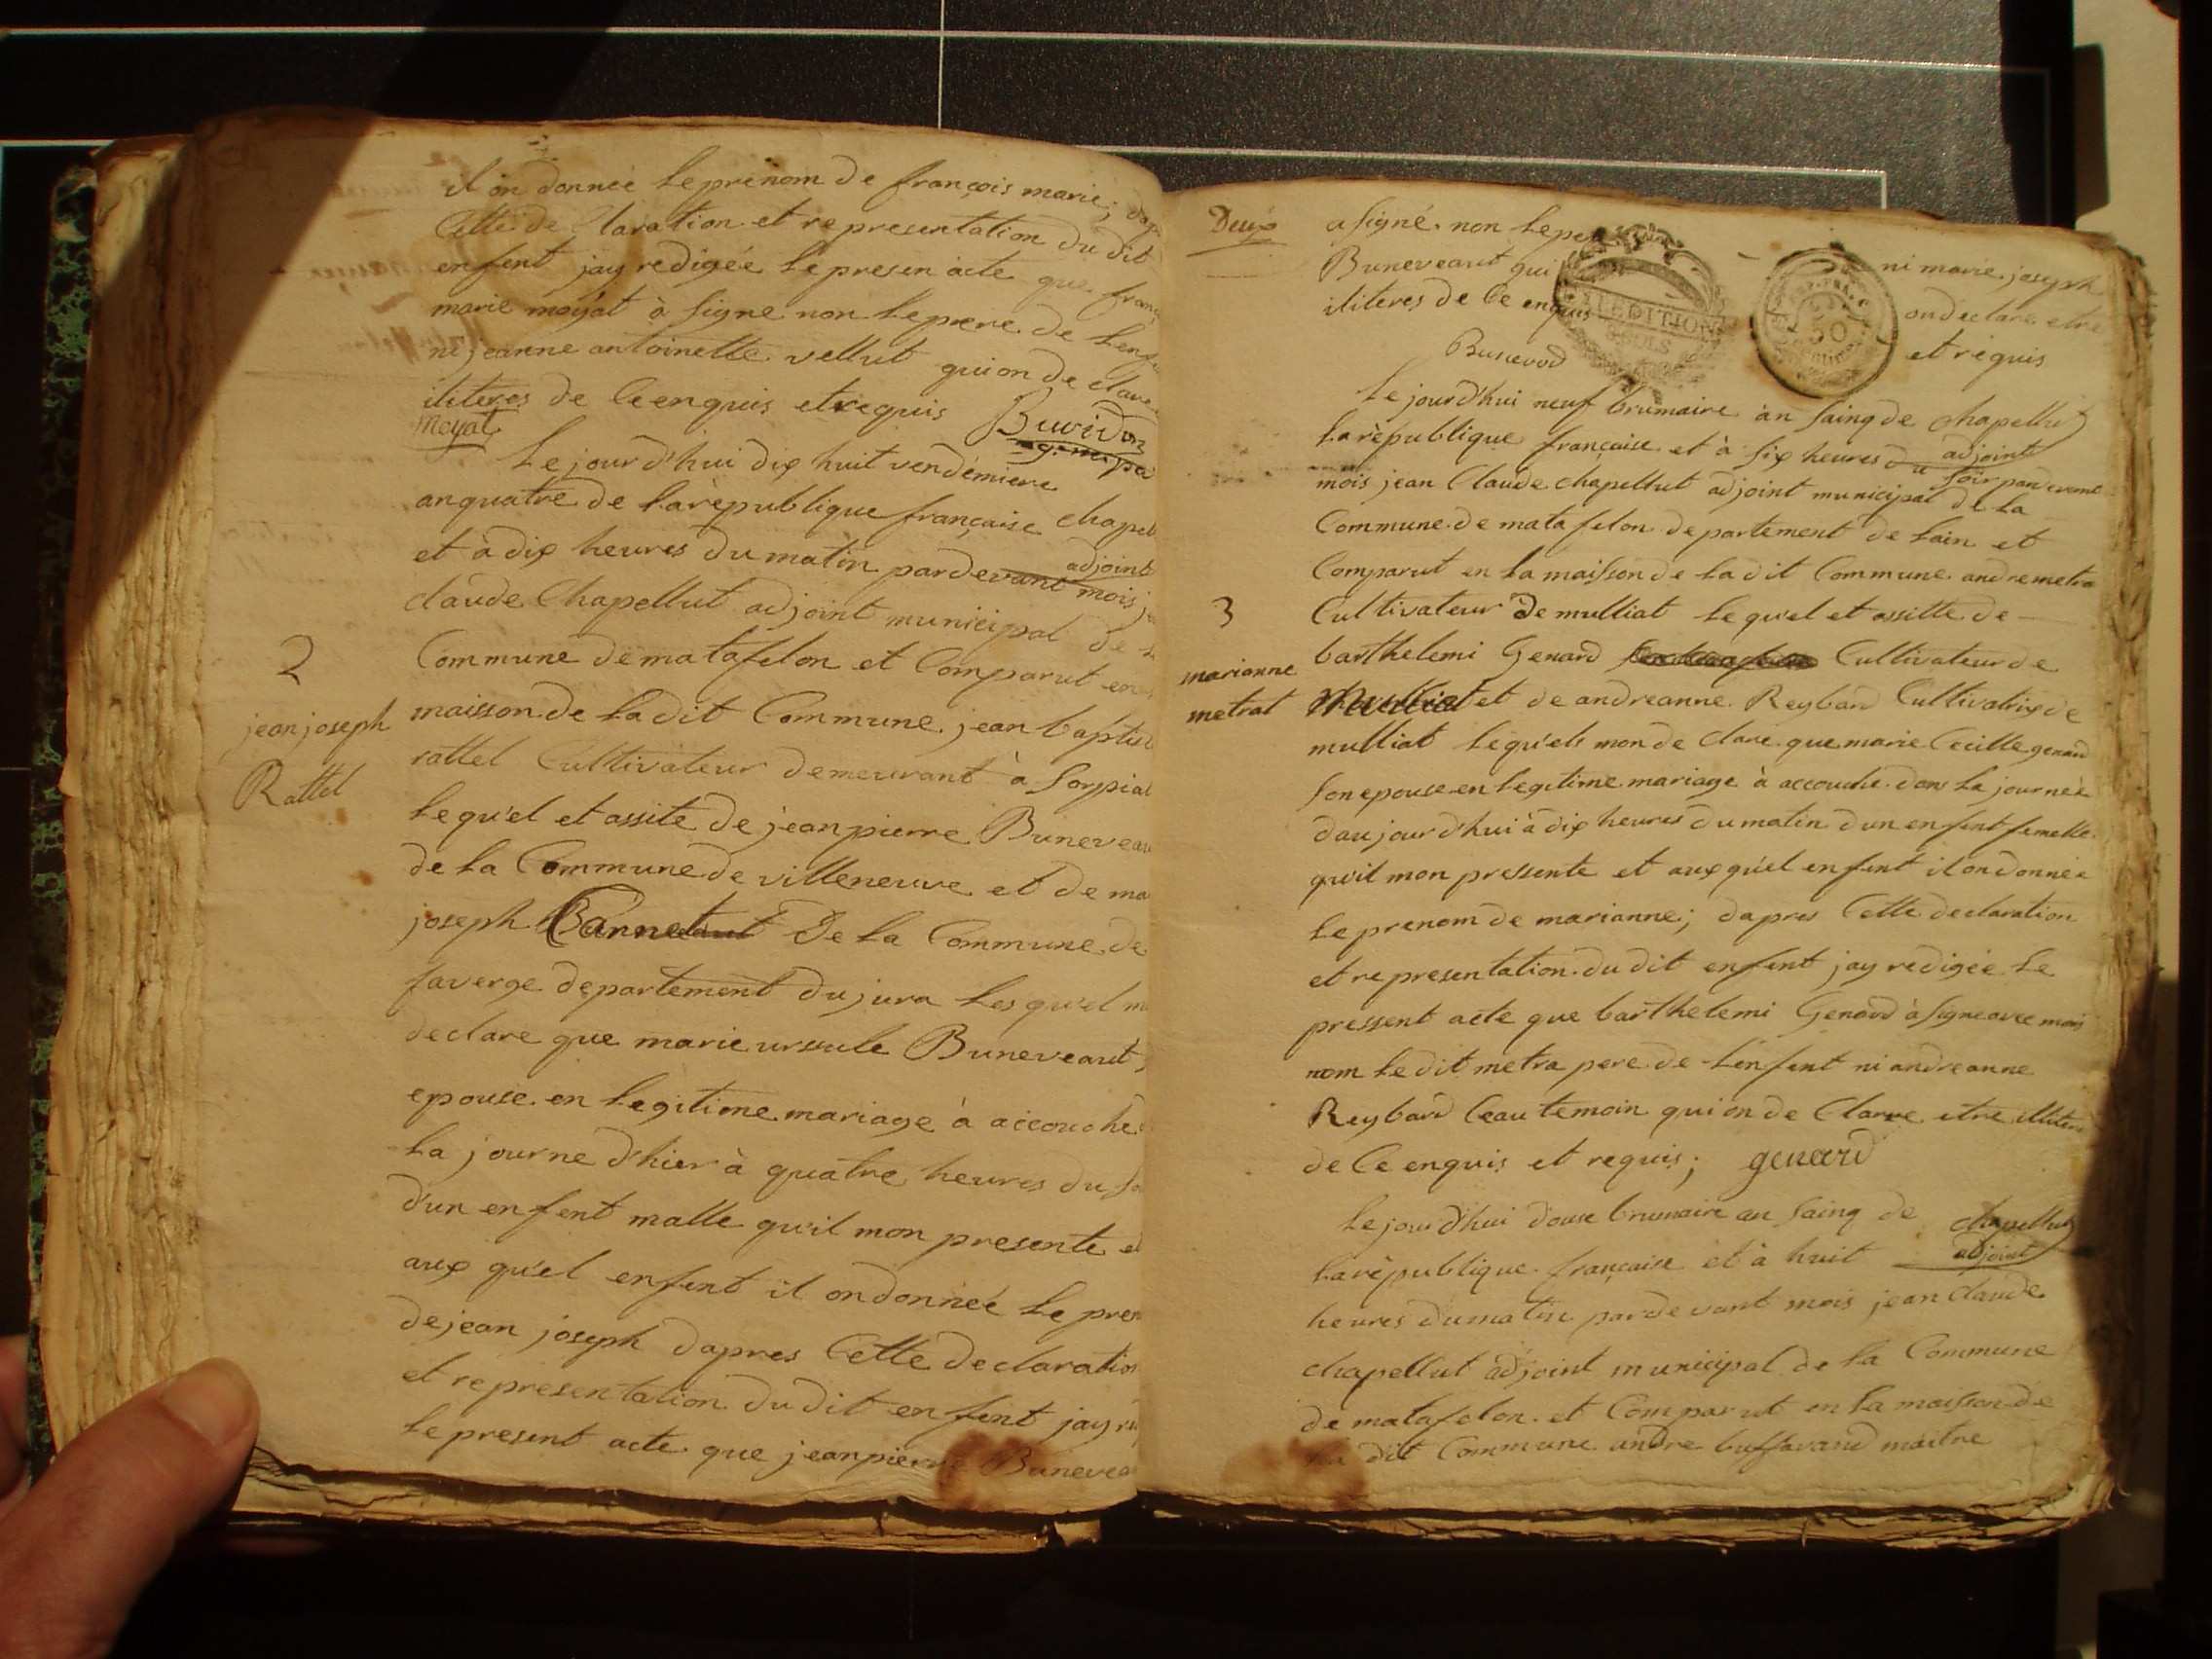 il on donnée le prénom de françois marie; dap
Cette de Claration et representation du dit
enfent jay redigée le presen acte que franç
marie moyat à signe non le pere de lenfe
ni jeanne antoinette vellut qui on de clare
iliteres de Ce enquis et requis Buvidon
Moyat
Le jourd'hui dix huit vendémiere
an quatre de la république française Chapel
et à dix heures du matin pardevant mois j
adjoint
claude Chapellut adjoint municipal de l
Commune de matafelon et Comparut en
maisson de la dit Commune jean baptis
rattel Cultivateur demeurant à Sorpiat
2
jean joseph
Rattel
le qu'el et assité de jean pierre Buneveau
de la Commune de villeneuve et de ma
joseph de la Commune de
faverge departement du jura les qu'el m
declare que marie ursule Buneveaut
epouse en legitime mariage à accouche
la journe d'hier à quatre heures du so
d'un enfent malle qu'il mon presente e
aux qu'el enfent il on donneé le pren
de jean joseph dapres Cette declaration
et representation du dit enfent jay re
le present acte que jean pierre Bunevea
Deux
a signé non le pere ni marie joseph
Buneveaut qui on declare etre
iliteres de Ce enquis et requis
EXPEDITION
SOLS
50
Bunevod
Le jourd'hui neuf brumaire àn Sainq de Chapellut
la république française et à six heures du soir pardevant
adjoint
mois jean Claude chapellut adjoint municipal de la
Commune de matafelon departement de lain et
Comparut en la maisson de la dit Commune andre metra
Cultivateur de mulliat le qu'el et assitte de
3
marianne
metrat
barthelemi Genard Cultivateur de
Mulliat et de andreanne Reybard Cultivatrix de
mulliat lequ'els mon de clare que marie Cecille genard
son epouse en legitime mariage à accouche dans la journeé
daujourd'hui à dix heures du matin d'un enfent femelle
qu'il mon pressente et aux qu'el enfent il on donnée
le prenom de marianne; dapres Cette declaration
et representation du dit enfent jay redigée le
pressent acte que barthelemi Genard à signe avec mois
nom le dit metra pere de lenfent ni andreanne
Reybard Ceau temoin qui on de Clarre etre illitere
de Ce enquis et requis; genard
Le jourd'hui douse brumaire an Sainq de Chapellut
la république française et à huit adjoint
heures du matin pardevant mois jean Claude
chapellut adjoint municipal de la Commune
de matafelon et Comparut en la maisson de
la dit Commune andre buffavand maitre